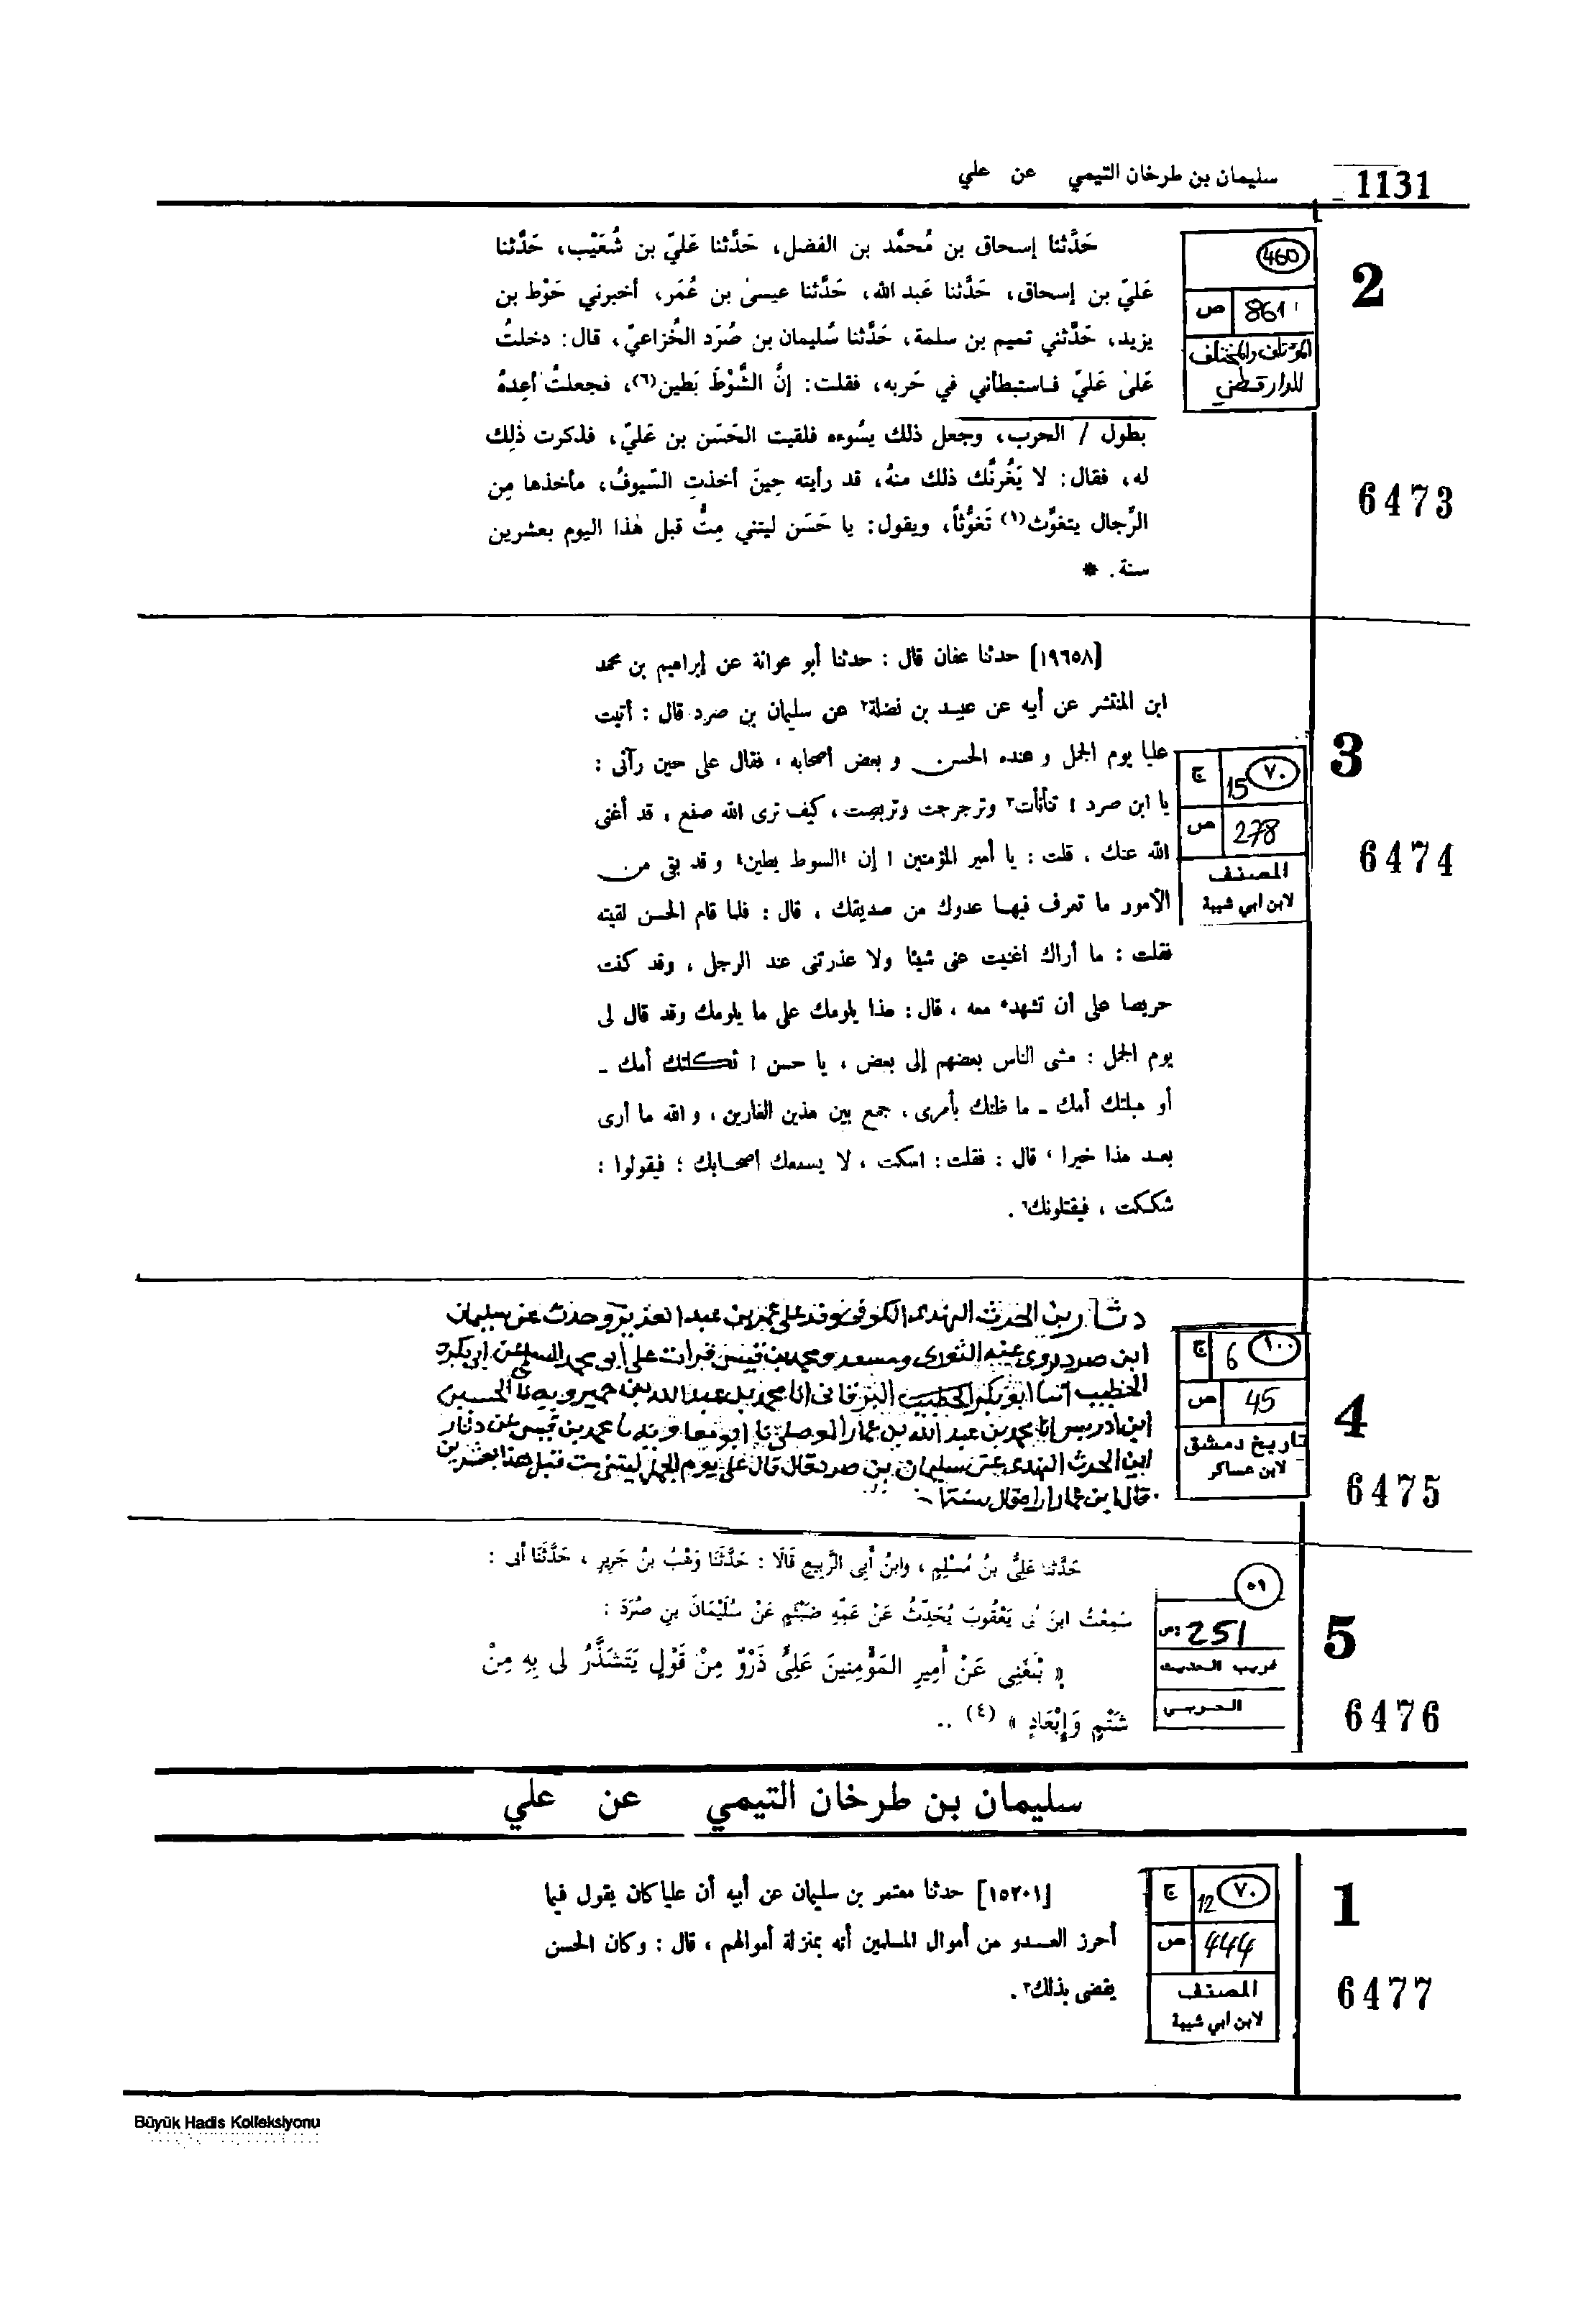 1131
سليمان بن طرخان التيمي عن علي
2
460
861 ص
المؤتلف والمختلف
للدارقطني
6473
حَدَّثنا إسحاق بن مُحمَّد بن الفضل، حَدَّثنا عَليّ بن شُعَيْب، حَدَّثنا
عَليّ بن إسحاق، حَدَّثنا عَبد الله، حَدَّثنا عيسىٰ بن عُمَر، أخبرني حَوْط بن
يزيد، حَدَّثني تميم بن سلمة، حَدَّثنا سُليمان بن صُرَد الخُزاعيّ، قال: دخلتُ
عَلىٰ عَليّ فاستبطأني في حَربه، فقلت: إنَّ الشَّوْطَ بَطين(٦)، فجعلتُ أعِدهُ
بطول / الحرب، وجعل ذلك يسُوءه فلقيت الحَسَن بن عَليّ، فذكرت ذٰلِك
له، فقال: لا يَغُرنَّك ذلك منهُ، قد رأيته حِينَ أخذتِ السّيوفُ، مأخذها مِن
الرِّجال يتغوَّث(١) تَغوُّثاً، ويقول: يا حَسَن ليتني مِتُّ قبل هٰذا اليوم بعشرين
سنة. *
3
٧٠ 15 ج
278 ص
المصنف
لابن ابي شيبة
6474
[١٩٦٥٨] حدثنا عفان قال : حدثنا أبو عوانة عن إبراهيم بن محمد
ابن المنتشر عن أبيه عن عبيد بن نضلة٢ عن سليمان بن صرد قال : أتيت
عليا يوم الجمل و عنده الحسن و بعض أصحابه ، فقال على حين رآنى :
يا ابن صرد ! تنأنأت٣ وترجرجت وتربصت ، كيف ترى الله صنع ، قد أغنى
الله عنك ، قلت : يا أمير المؤمنين ! إن السوط بطين٤ و قد بقى من
الأمور ما تعرف فيها عدوك من صديقك ، قال : فلما قام الحسن لقيته
فقلت : ما أراك اغنيت عنى شيئا ولا عذرتنى عند الرجل ، وقد كنت
حريصا على أن تشهد٥ معه ، قال : هذا يلومك على ما يلومك وقد قال لى
يوم الجمل : مشى الناس بعضهم إلى بعض ، يا حسن ! ثكلتك أمك ـ
أو هبلتك أمك ـ ما ظنك بأمرى ، جمع بين هذين الغارين ، و الله ما أرى
بعد هذا خيرا ، قال : فقلت : اسكت ، لا يسمعك أصحابك ؛ فيقولوا :
شككت ، فيقتلونك٦ .
4
١٠٠ 6 ج
45 ص
تاريخ دمشق
لابن عساكر
6475
دثار بن الحرث النهدى الكوفى وفد على عمر بن عبد العزيز وحدث عن سليمان
ابن صرد روى عنه الثورى ومسعر ومحمد بن قيس قرات على ابى محمد السلمى عن ابى بكر
الخطيب انا ابو بكر الخطيب البرقانى انا محمد بن عبد الله بن خميرويه انا الحسين
ابن ادريس انا محمد بن عبد الله بن عمار الموصلى نا ابو معاوية نا محمد بن قيس عن دثار
ابن الحرث النهدى عن سليمان بن صرد قال قال على يوم الجمل ليتنى مت قبل هذا بعشرين
قال ابن عمار اراه قال سنة
5
٥١
251 ص
غريب الحديث
الحربي
6476
حَدَّثنا عَلِىُّ بنُ مُسْلِمٍ ، وابنُ أَبِى الرَّبيعِ قَالَا : حَدَّثَنَا وَهْبُ بنُ جَرِيرٍ ، حَدَّثَنَا أَبى :
سَمِعْتُ ابنَ أَبى يَعْقُوبَ يُحَدِّثُ عَنْ عَمِّهِ ضَيْثَمٍ عَنْ سُلَيْمَانَ بنِ صُرَدَ :
« بَلَغَنِى عَنْ أَمِيرِ المُؤْمِنينَ عَلِىٍّ ذَرْوٌ مِنْ قَوْلٍ يَتَشَذَّرُ لى بِهِ مِنْ
شَتْمٍ وَإِبْعَادٍ » (٤) ..
سليمان بن طرخان التيمي عن علي
1
٧٠ 12 ج
444 ص
المصنف
لابن ابي شيبة
6477
[١٥٢٠١] حدثنا معتمر بن سليمان عن أبيه أن عليا كان يقول فيما
أحرز العدو من أموال المسلمين أنه بمنزلة أموالهم ، قال : وكان الحسن
يقضى بذلك٢ .
Büyük Hadis Kolleksiyonu